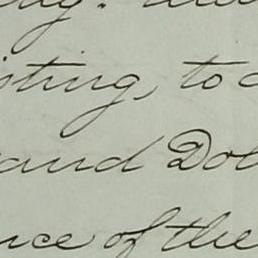 isting, to
and Dol
nce of the